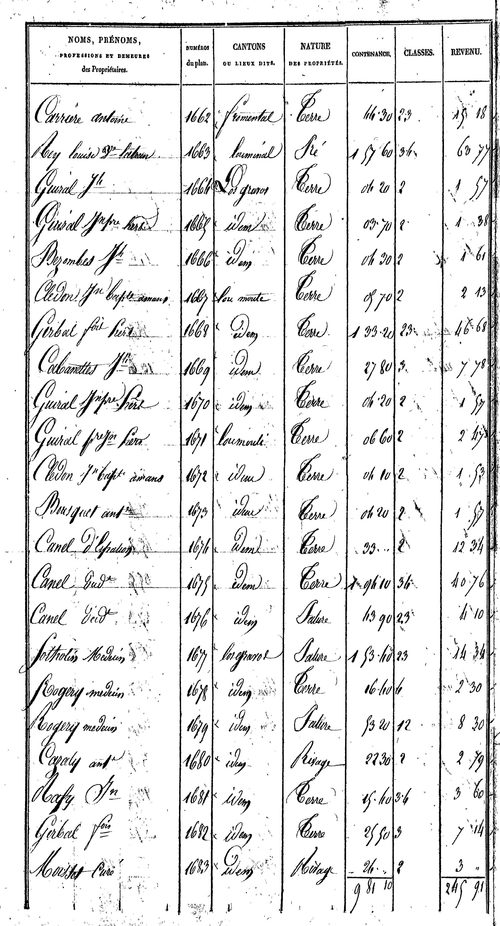 NOMS, PRÉNOMS, PROFESSIONS ET DEMEURES des Propriétaires. NUMÉROS du plan. CANTONS OU LIEUX DITS. NATURE DES PROPRIÉTÉS. CONTENANCE. CLASSES. REVENU.
Carrière antoine 1662 fromental Terre 44 30 23 15 18
Rey louise 1663 louménal Pré 1 57 60 34 63 77
Guiral Jh 1664 Los gravas Terre 04 20 2 1 57
Guiral 1665 idem Terre 03 70 2 1 38
Bezombes Jh 1666 idem Terre 04 30 2 1 61
Cledon Jn bapte amans 1667 lou moute Terre 2 2 13
Girbal fois 1668 idem Terre 1 33 20 23 46 68
Cabanettes Jh 1669 idem Terre 27 80 3 7 78
Guiral 1670 idem Terre 04 20 2 1 57
Guiral 1671 loumouli Terre 06 60 2 2 47
Cledon Jn bapt amans 1672 idem Terre 04 10 2 1 53
Bousquet ant 1673 idem Terre 04 20 2 1 57
Canel 1674 idem Terre 33 2 12 34
Canel 1675 idem Terre 1 94 10 34 40 76
Canel 1676 idem Pature 43 90 23 4 10
Médecin 1677 los gravas Pature 1 53 40 23 14 34
Rogery medecin 1678 idem Terre 16 40 6 2 30
Rogery medecin 1679 idem Pature 53 20 12 8 30
Cazaly ant 1680 idem Rivage 22 30 2 2 79
Jn 1681 idem Terre 15 40 3 4 3 60
Girbal fois 1682 idem Terre 25 50 3 7 14
Curé 1683 idem Rivage 24 2 3
9 81 10 245 91